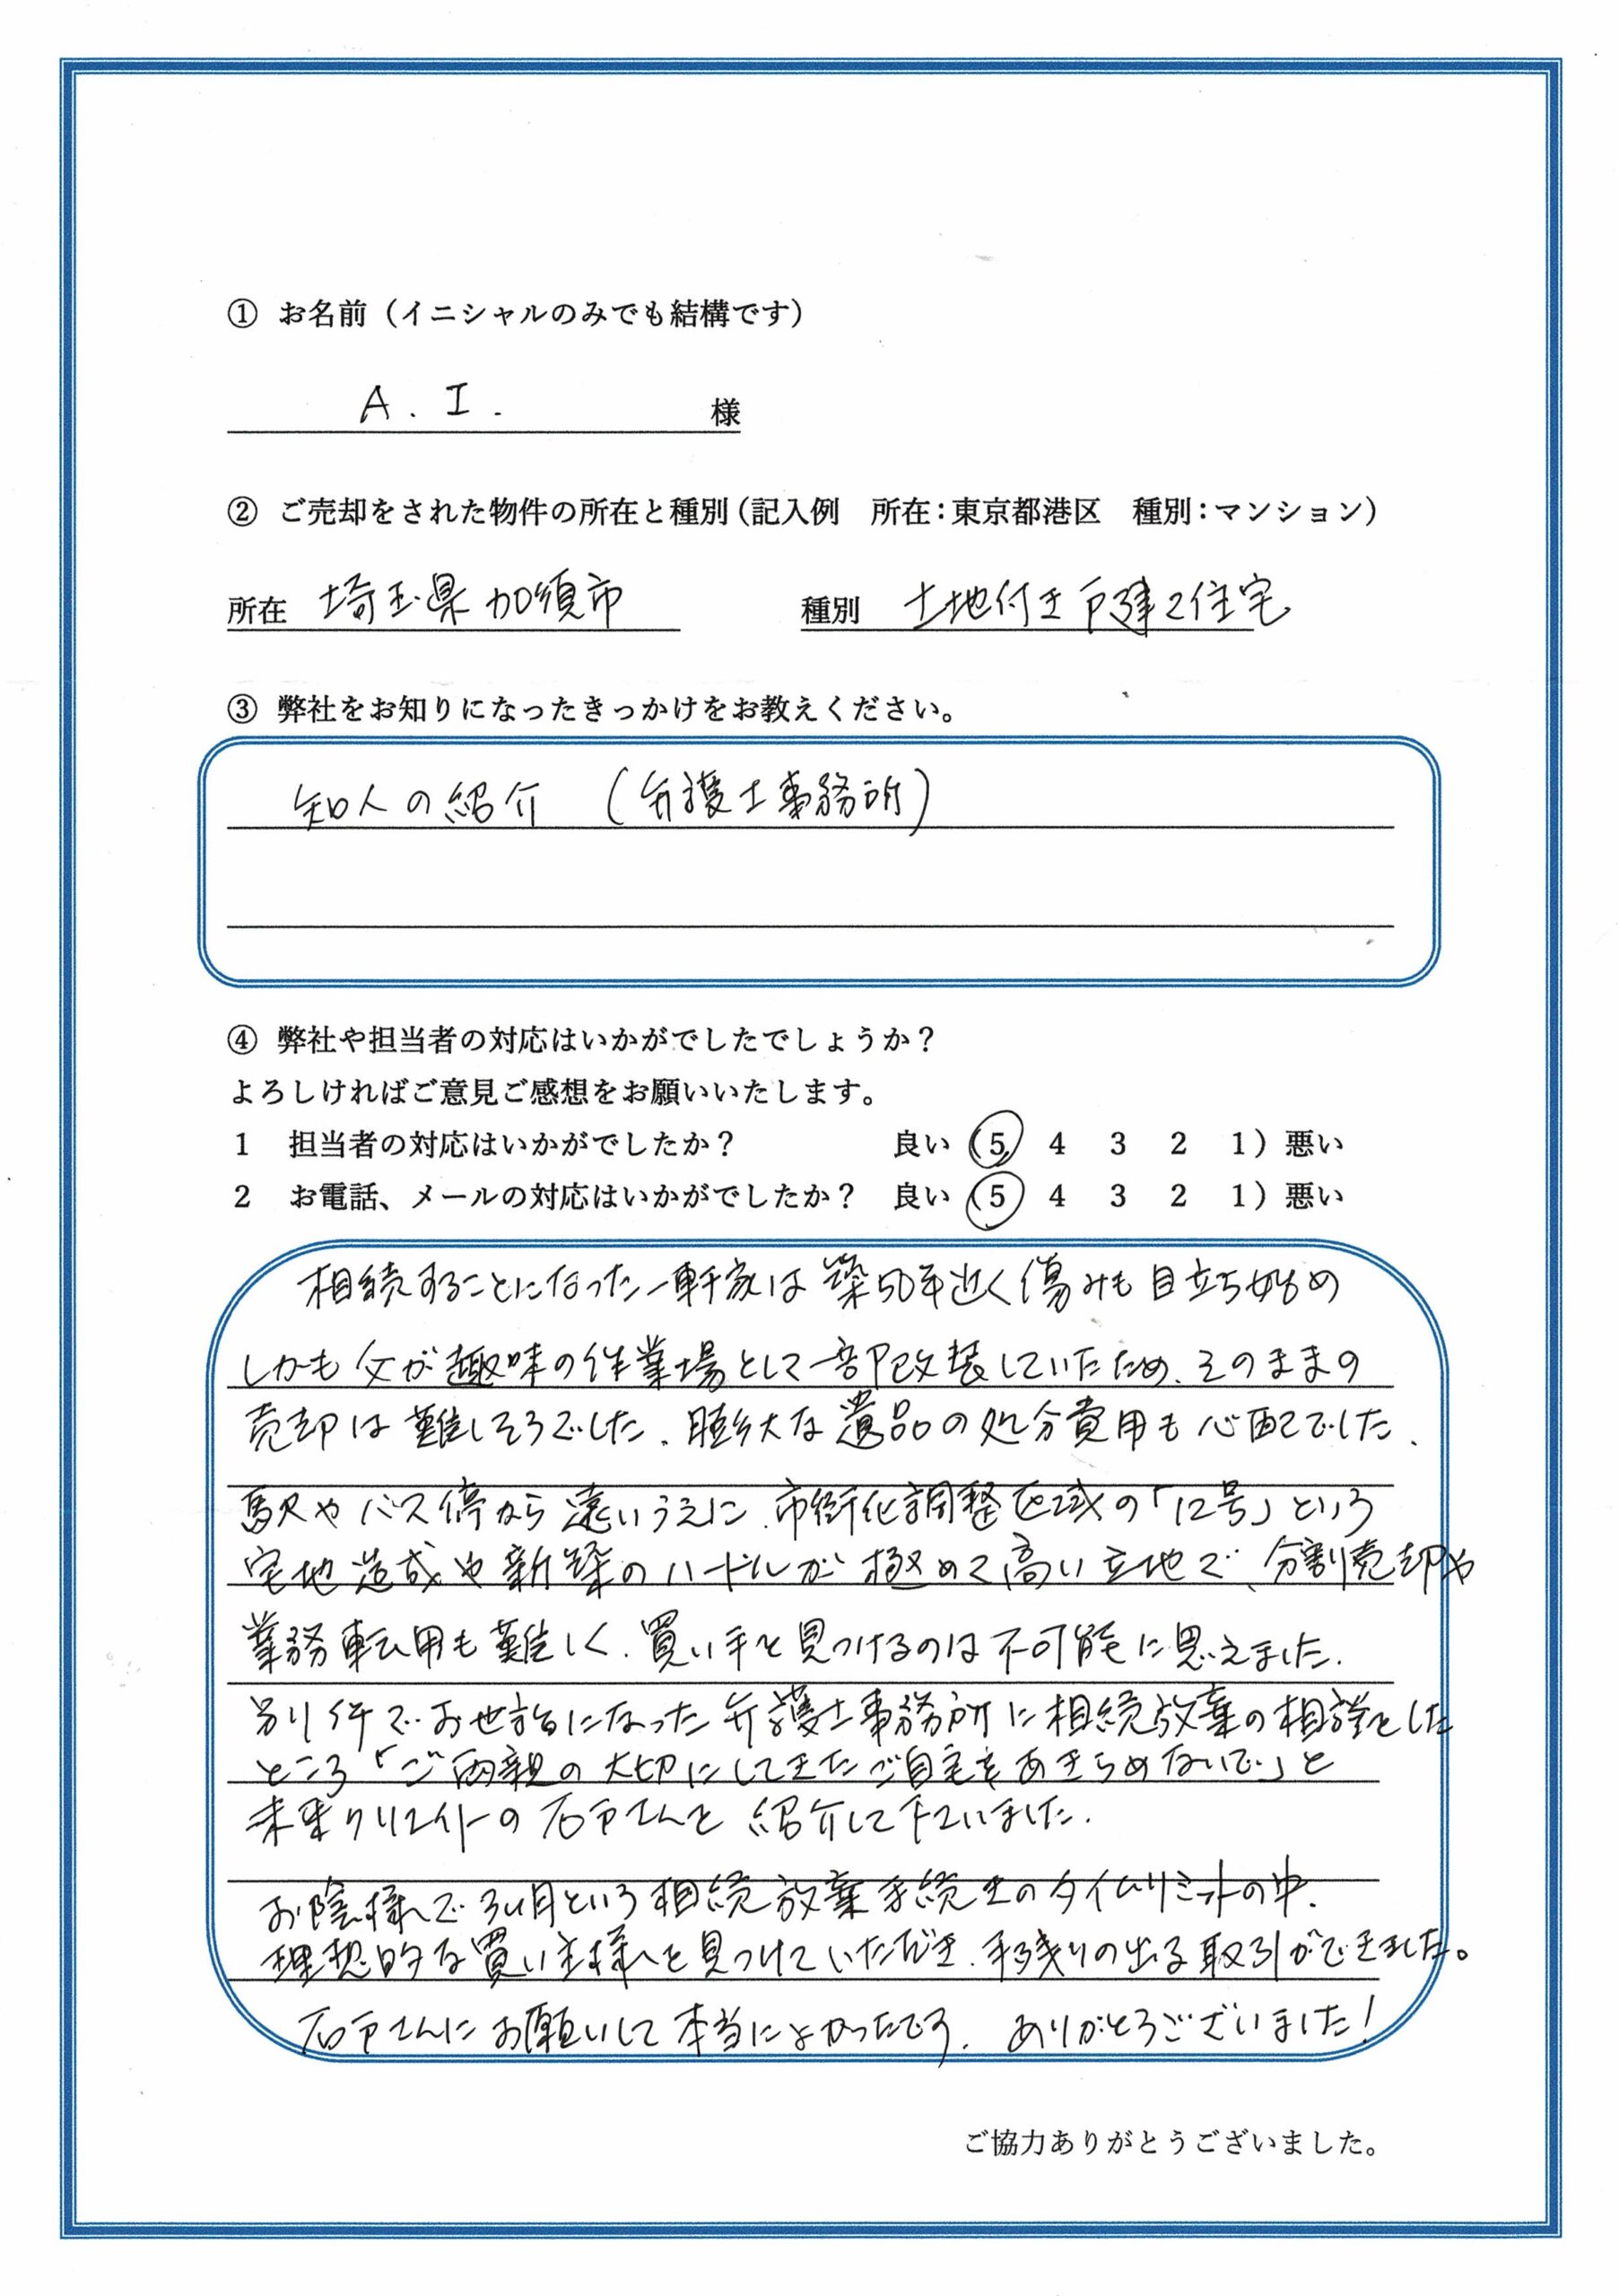 ① お名前（イニシャルのみでも結構です）
A. I. 様
② ご売却をされた物件の所在と種別（記入例 所在：東京都港区 種別：マンション）
所在 埼玉県加須市 種別 土地付き戸建て住宅
③ 弊社をお知りになったきっかけをお教えください。
知人の紹介 （弁護士事務所）
④ 弊社や担当者の対応はいかがでしたでしょうか？
よろしければご意見ご感想をお願いいたします。
1 担当者の対応はいかがでしたか？ 良い（5 4 3 2 1）悪い
2 お電話、メールの対応はいかがでしたか？ 良い（5 4 3 2 1）悪い
相続することになった一軒家は築50年近く傷みも目立ち始め
しかも父が趣味の作業場として一部改装していたため、そのままの
売却は難しそうでした、膨大な遺品の処分費用も心配でした、
駅やバス停から遠いうえに、市街化調整区域の「12号」という
宅地造成や新築のハードルが極めて高い立地で、分割売却や
業務転用も難しく、買い手を見つけるのは不可能に思えました、
別件でお世話になった弁護士事務所に相続放棄の相談をした
ところ「ご両親の大切にしてきたご自宅をあきらめないで」と
未来クリエイトの石戸さんを紹介して下さいました、
お陰様で3ヶ月という相続放棄手続きのタイムリミットの中、
理想的な買い主様を見つけていただき、手残りの出る取引ができました。
石戸さんにお願いして本当によかったです、ありがとうございました！
ご協力ありがとうございました。